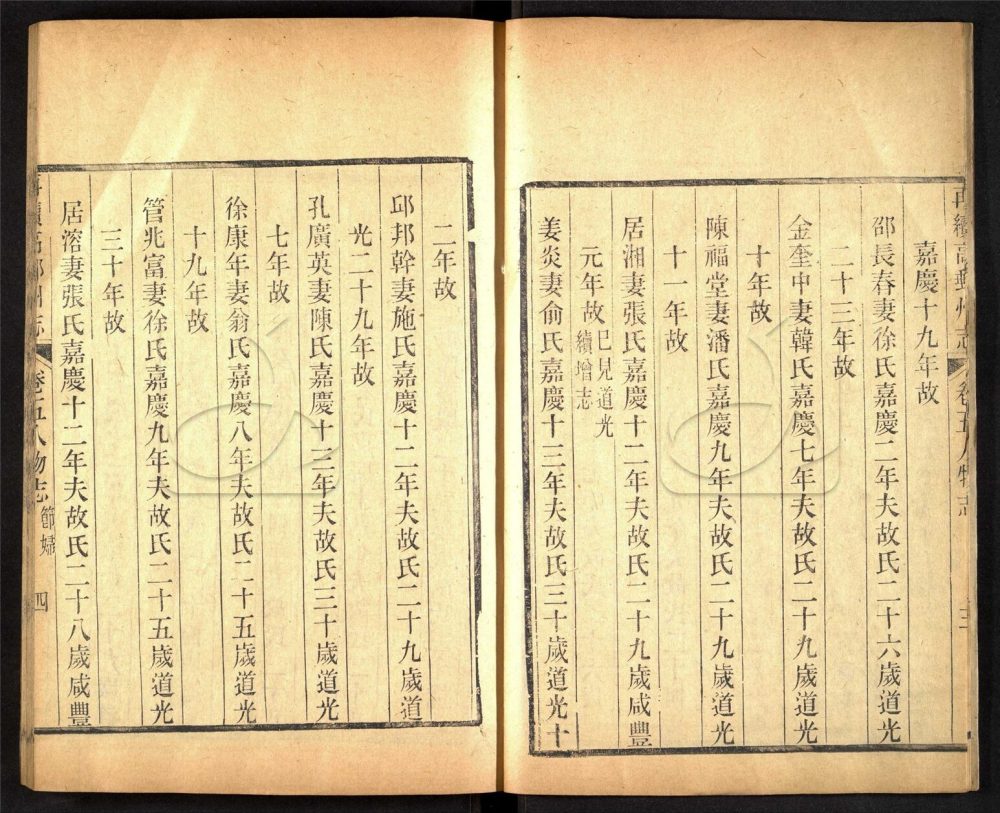 再續高郵州志 卷五人物志 三
嘉慶十九年故
邵長春妻徐氏嘉慶二年夫故氏二十六歲道光
二十三年故
金奎申妻韓氏嘉慶七年夫故氏二十九歲道光
十年故
陳福堂妻潘氏嘉慶九年夫故氏二十九歲道光
十一年故
居湘妻張氏嘉慶十二年夫故氏二十九歲咸豐
元年故已見道光續增志
姜炎妻俞氏嘉慶十三年夫故氏三十歲道光十
二年故
邱邦幹妻施氏嘉慶十二年夫故氏二十九歲道
光二十九年故
孔廣英妻陳氏嘉慶十三年夫故氏三十歲道光
七年故
徐康年妻翁氏嘉慶八年夫故氏二十五歲道光
十九年故
管兆富妻徐氏嘉慶九年夫故氏二十五歲道光
三十年故
居溶妻張氏嘉慶十二年夫故氏二十八歲咸豐
再續高郵州志 卷五人物志 節婦 四